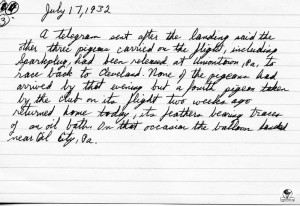 July 17, 1932
(3)
A telegram sent after the landing said the
other three pigeons carried on the flight, including
Sparkplug, had been released at Uniontown, Pa. to
race back to Cleveland. None of the pigeons had
arrived by that evening but a fourth pigeon taken
by the club on its flight two weeks ago
returned home today, its feathers bearing traces
of an oil bath. On that occasion the balloon landed
near Oil City, Pa.